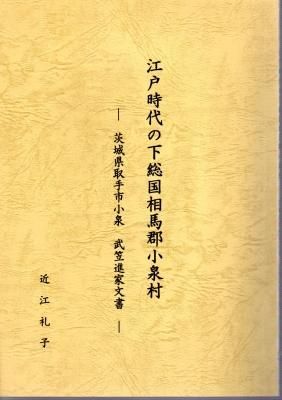 江戸時代の下総国相馬郡小泉村
― 茨城県取手市小泉　武笠進家文書 ―
近江礼子